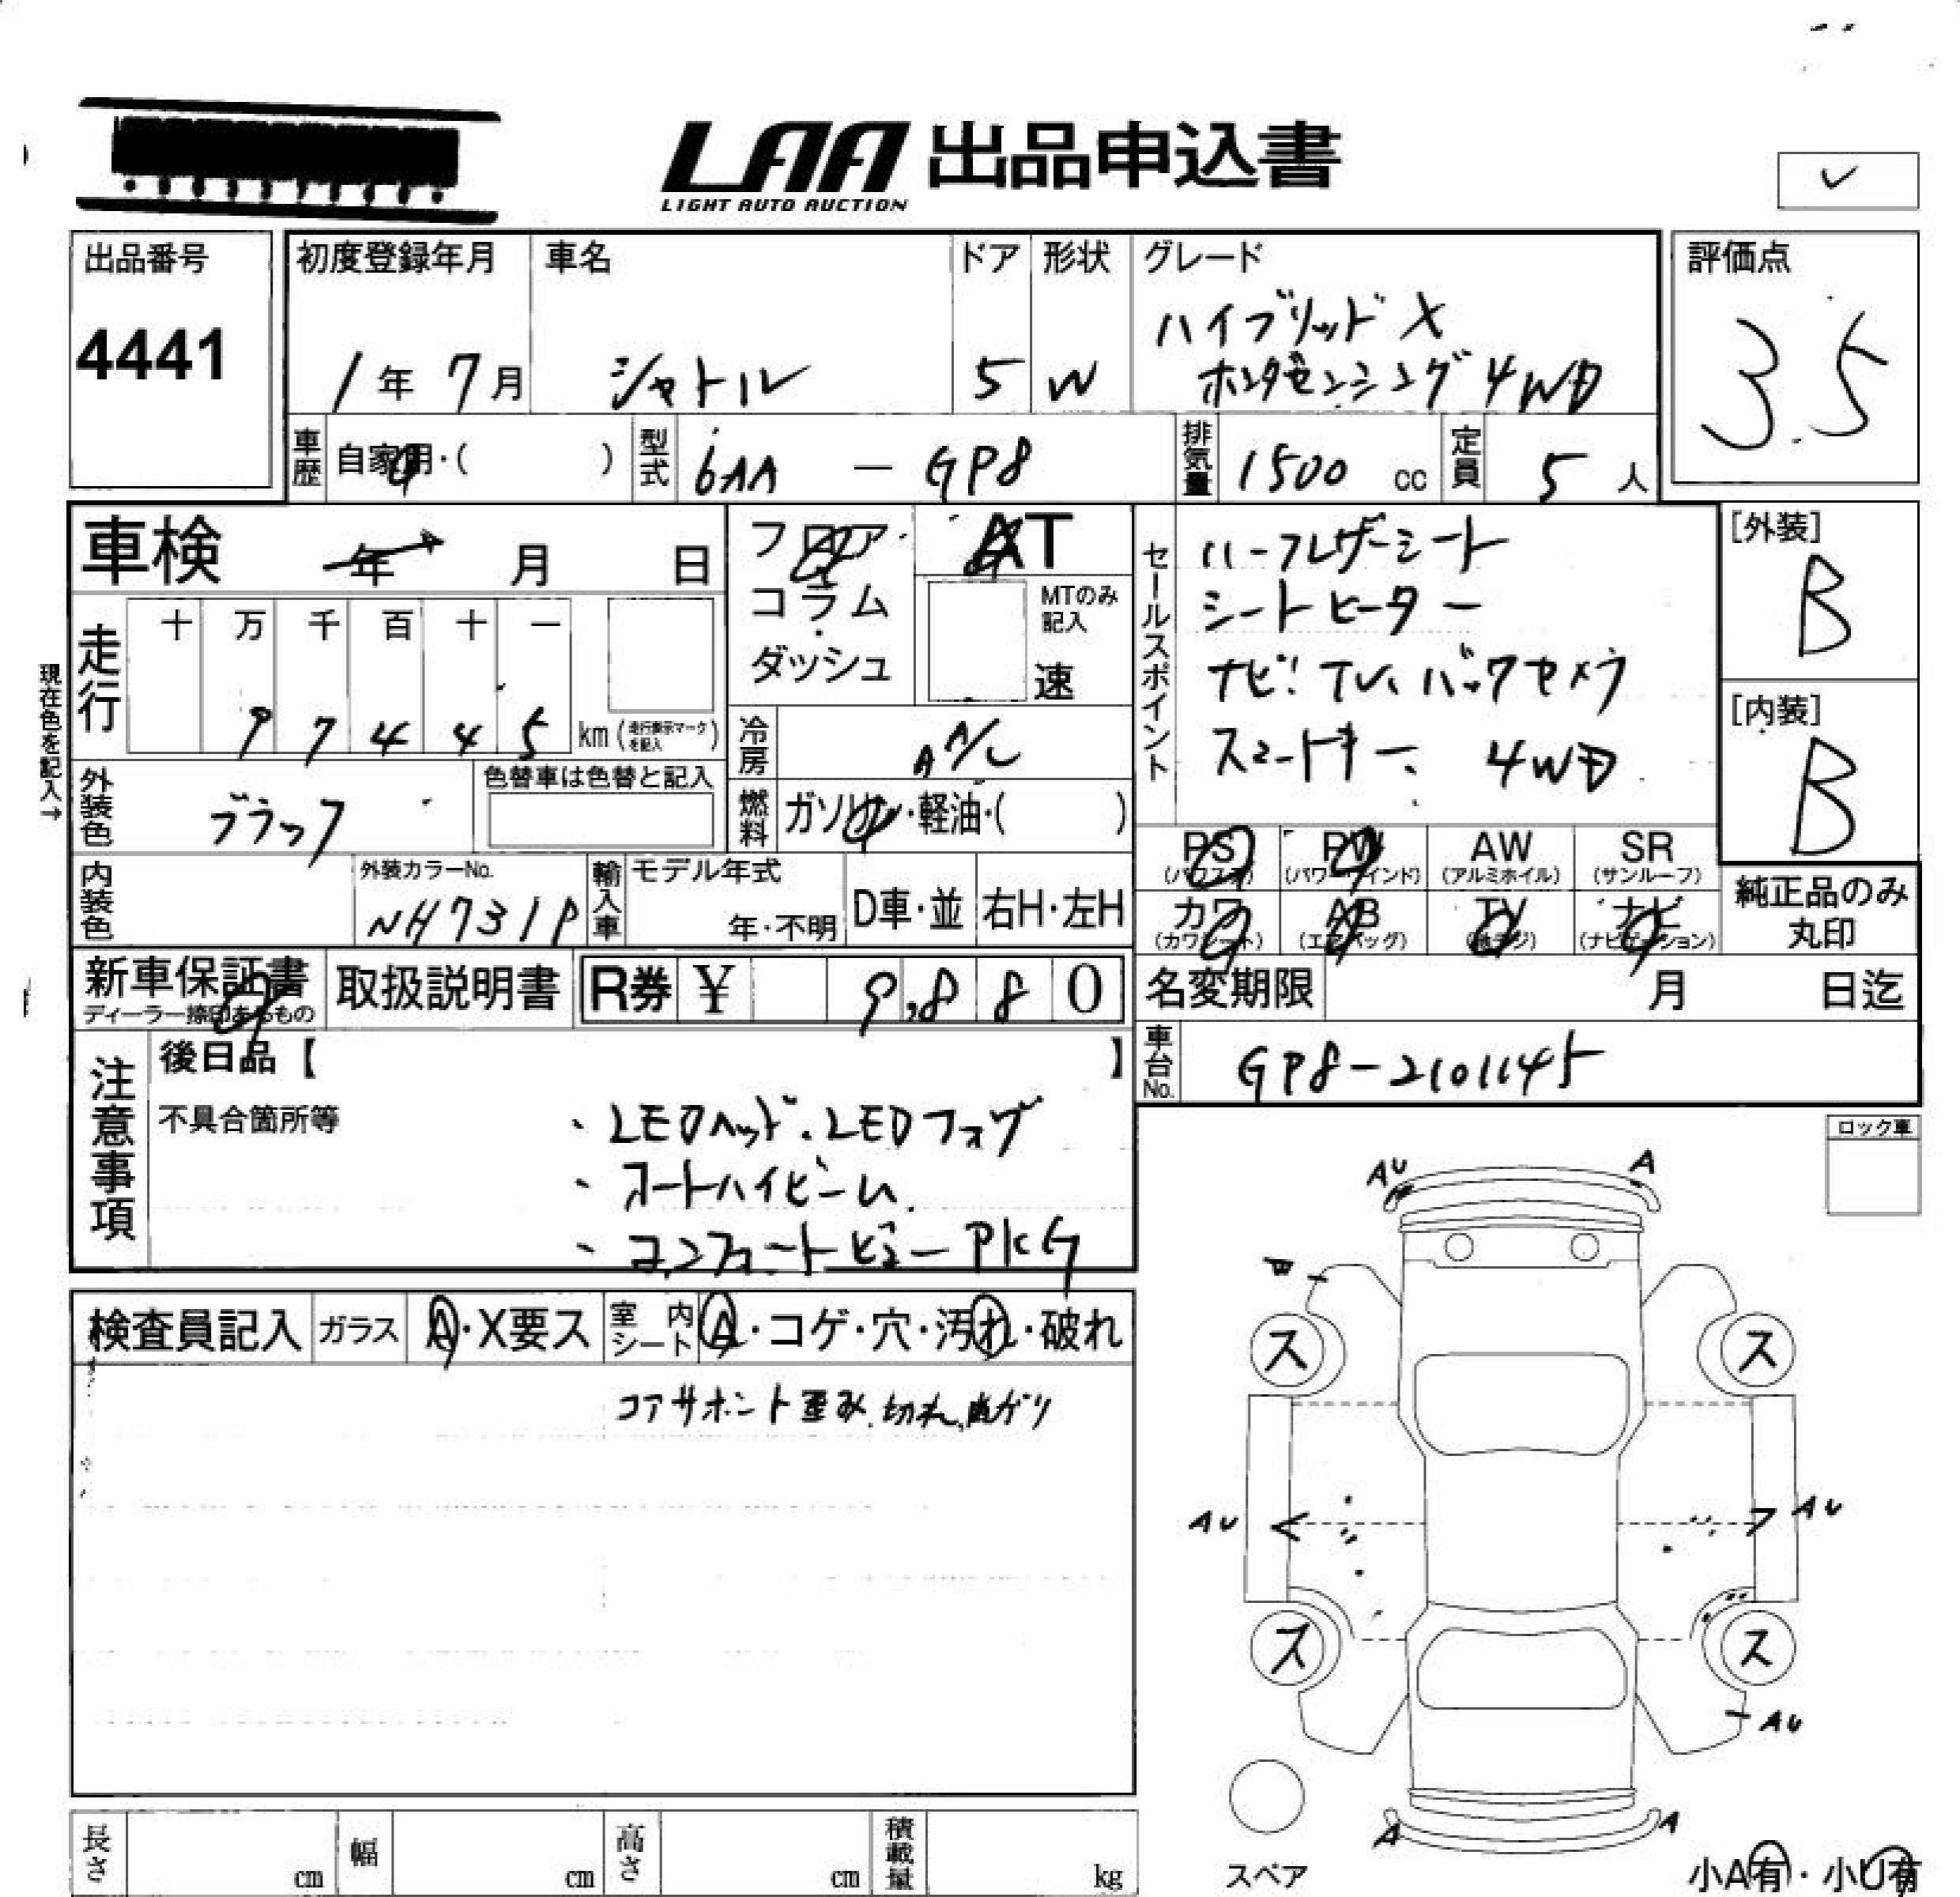 LAA 出品申込書
LIGHT AUTO AUCTION
✓
出品番号
4441
初度登録年月
1年 7月
車名
シャトル
ドア
5
形状
W
グレード
ハイブリッド X
ホンダセンシング 4WD
評価点
3.5
車歴
自家用・( )
型式
6AA - GP8
排気量
1500 cc
定員
5 人
車検
年 月 日
フロア
コラム
ダッシュ
AT
MTのみ
記入
速
セールスポイント
ハーフレザーシート
シートヒーター
ナビ、TV、バックカメラ
スマートキー、 4WD
[外装]
B
[内装]
B
現在色を記入→
走行
十 万 千 百 十 一
9 7 4 4 5 km (走行表示マークを記入)
冷房
AA/C
外装色
ブラック
色替車は色替と記入
燃料
ガソリン・軽油・( )
PS
(パワステ)
PW
(パワーウインド)
AW
(アルミホイル)
SR
(サンルーフ)
カワ
(カワシート)
AB
(エアバッグ)
TV
(地デジ)
ナビ
(ナビゲーション)
純正品のみ
丸印
内装色
外装カラーNo.
NH731P
輸入車
モデル年式
年・不明
D車・並
右H・左H
新車保証書
ディーラー捺印あるもの
取扱説明書
R券 ¥ 9,880
名変期限
月 日迄
車台No.
GP8-2101145
注意事項
後日品【 】
不具合箇所等
、LEDヘッド、LEDフォグ
、オートハイビーム
、コンフォートビューPKG
ロック車
検査員記入
ガラス
A・X要ス
室内シート
A・コゲ・穴・汚れ・破れ
コアサポート歪み、切れ、曲ガリ
AU
A
W
ス
ス
AU
AU
ス
ス
AU
A
A
スペア
小A有・小U有
長さ
cm
幅
cm
高さ
cm
積載量
kg